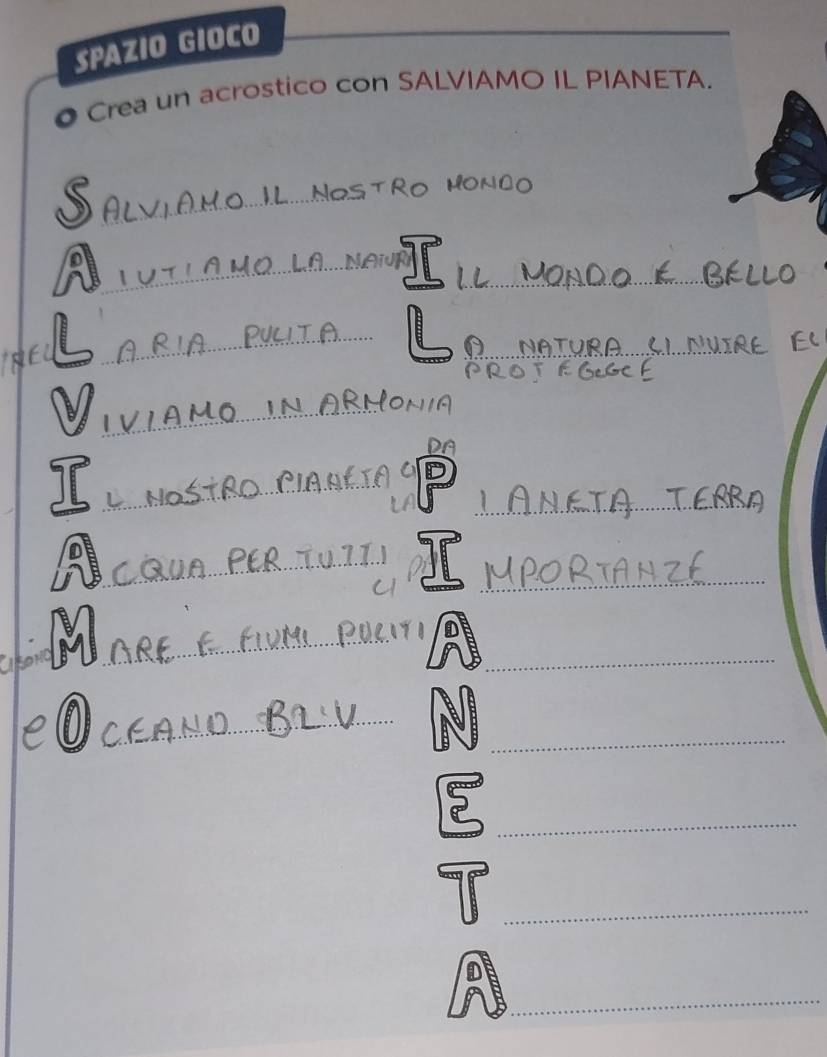 SPAZIO GIOCO
Crea un acrostico con SALVIAMO IL PIANETA.
SALVIAMO IL NOSTRO MONDO
AIUTIAMO LA NATURA
LARIA PULITA
VIVIAMO IN ARMONIA
IL NOSTRO PIANETA
ACQUA PER TUTTI
MARE E FIUMI PULITI
e OCEANO BLU
IIL MONDO E BELLO
LA NATURA CI NUTRE E CI
PROTEGGE
DA
PIANETA TERRA
IMPORTANZE
A
N
E
T
A